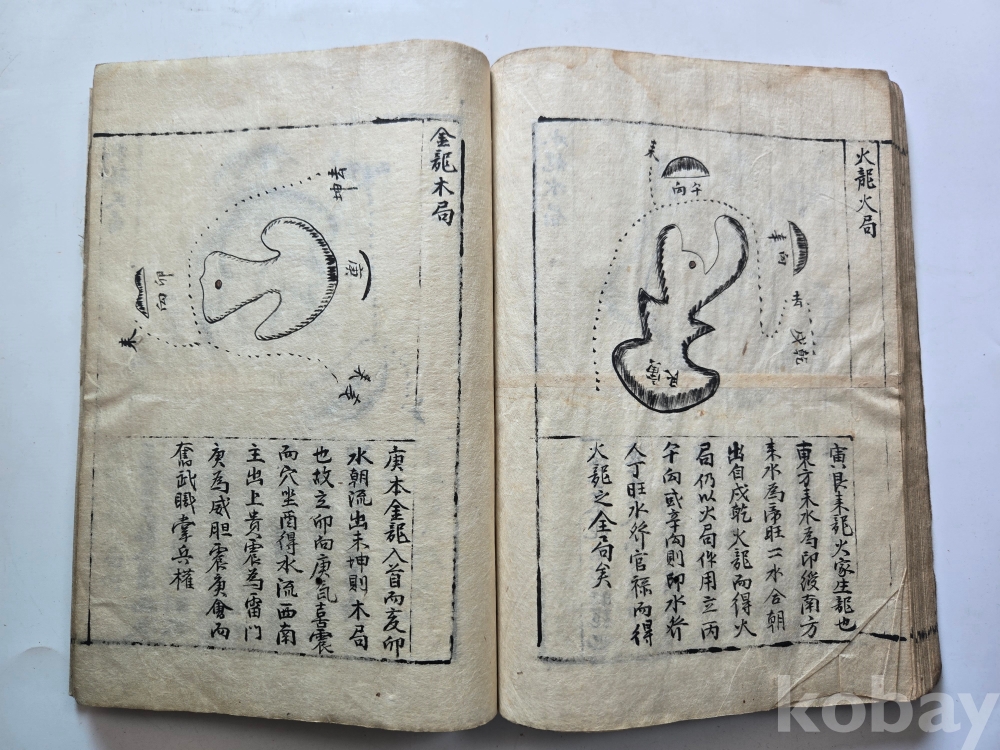 火龍火局
来
午向
辛向
去
戌乾
艮寅
寅艮来龍火家生龍也
東方来水為印綬南方
来水為帝旺二水合朝
出自戌乾火龍而得火
局仍以火局作用立丙
午向或辛向則即水
人丁旺水 官禄而得
火龍之全局矣
金龍木局
去坤
庚
卯向
来
庚本金龍入首而亥卯
水朝流出未坤則木局
也故立卯向庚氣喜震
而穴坐酉得水流西南
主出上貴震為雷門
庚為威胆震庚會而
奮武職掌兵權
kobay